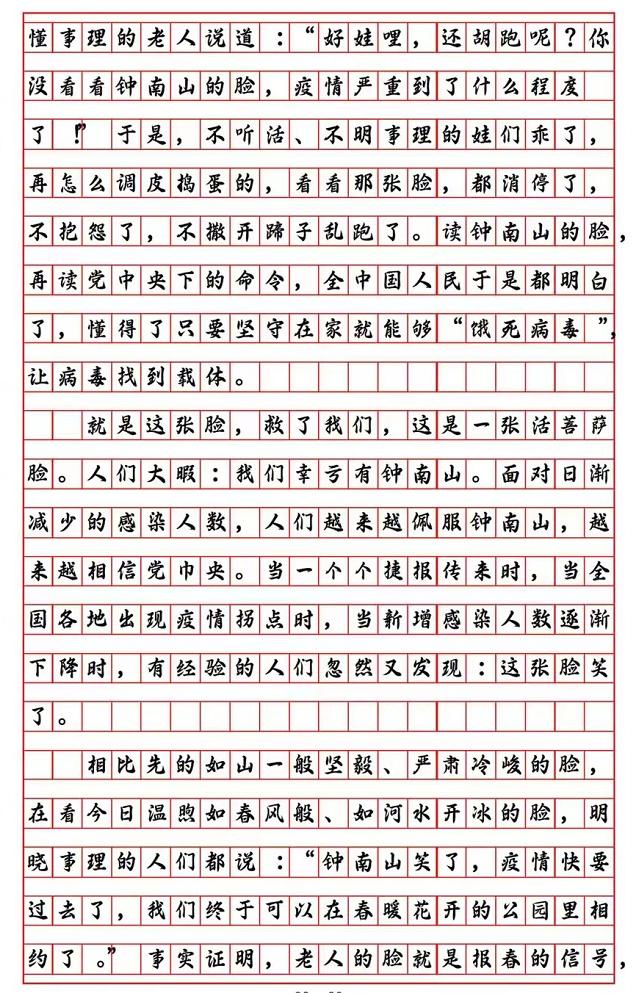 懂事理的老人说道：“好娃哩，还胡跑呢？你
没看看钟南山的脸，疫情严重到了什么程度
了！”于是，不听活、不明事理的娃们乖了，
再怎么调皮捣蛋的，看看那张脸，都消停了，
不抱怨了，不撒开蹄子乱跑了。读钟南山的脸，
再读党中央下的命令，全中国人民于是都明白
了，懂得了只要坚守在家就能够“饿死病毒”，
让病毒找到载体。
就是这张脸，救了我们，这是一张活菩萨
脸。人们大暇：我们幸亏有钟南山。面对日渐
减少的感染人数，人们越来越佩服钟南山，越
来越相信党巾央。当一个个捷报传来时，当全
国各地出现疫情拐点时，当新增感染人数逐渐
下降时，有经验的人们忽然又发现：这张脸笑
了。
相比先的如山一般坚毅、严肃冷峻的脸，
在看今日温煦如春风般、如河水开冰的脸，明
晓事理的人们都说：“钟南山笑了，疫情快要
过去了，我们终于可以在春暖花开的公园里相
约了。”事实证明，老人的脸就是报春的信号，